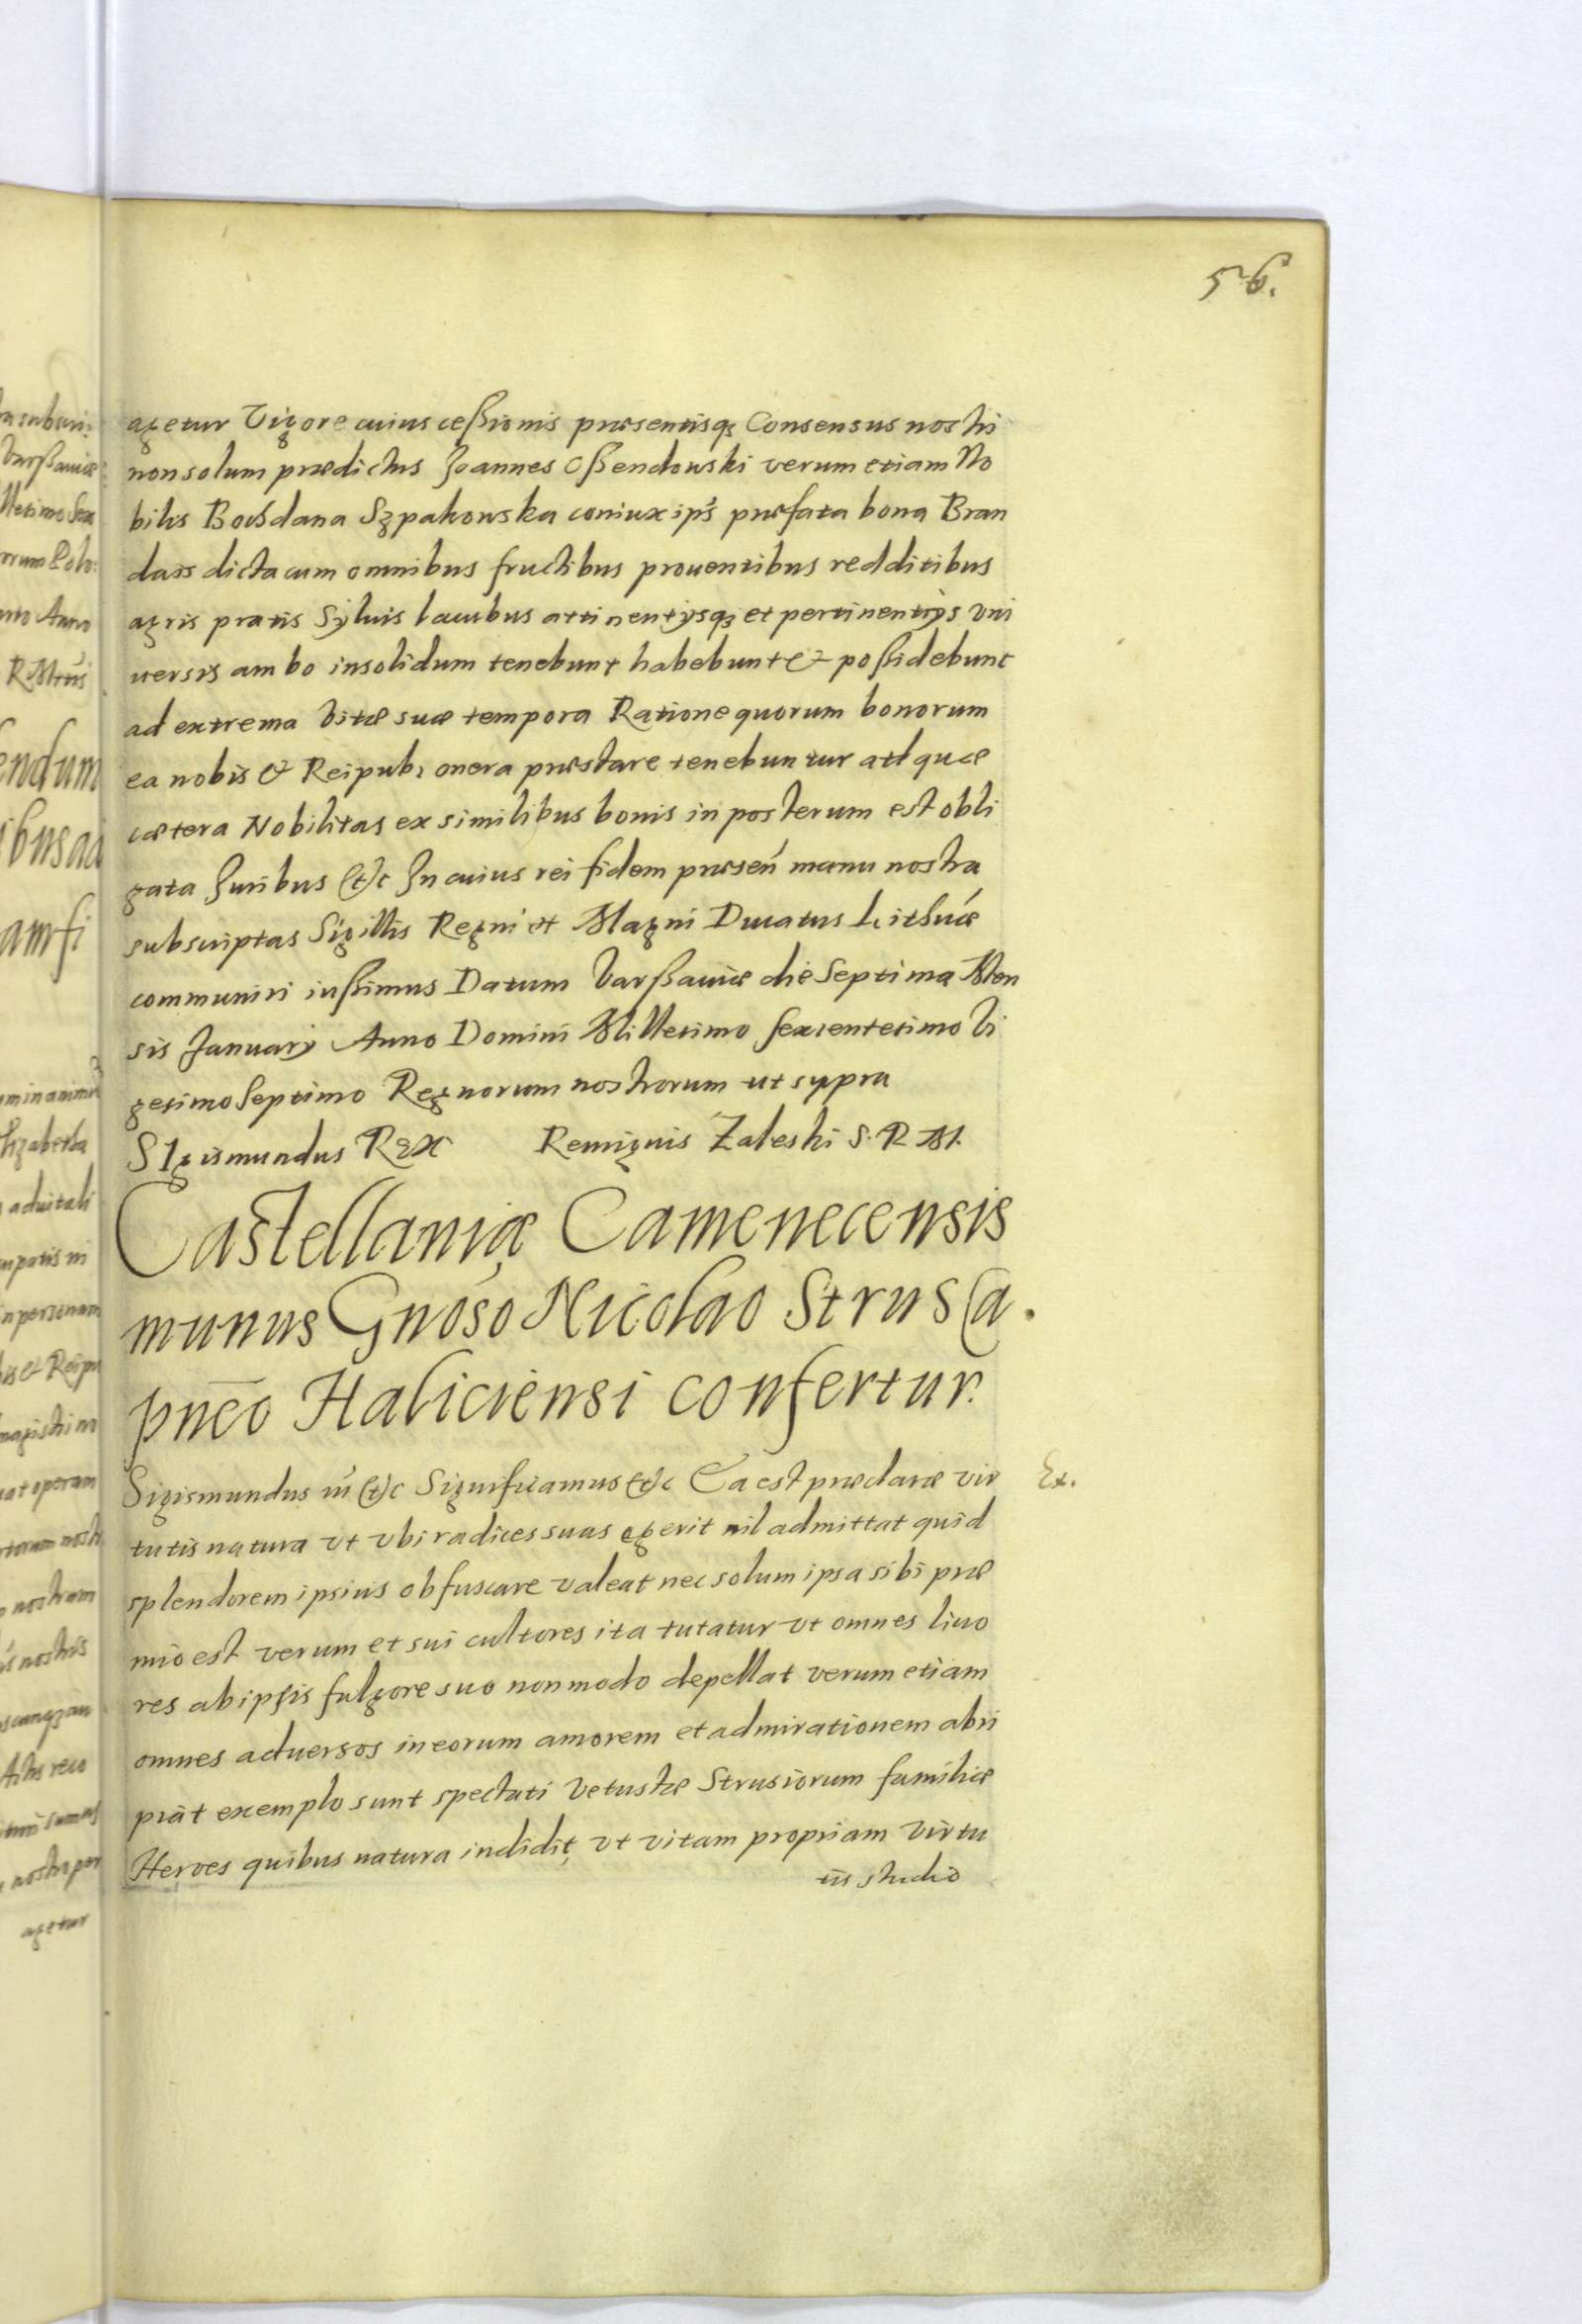 56.
agetur Vigore cuius cessionis præsentisq; Consensus nostri
non solum prædictus Joannes Ossendowski verum etiam No
bilis Bohdana Szpakowska coniux ips̃ præfata bona Bran
dais dicta cum omnibus fructibus prouentibus redditibus
agris pratis Syluis lacubus attinentijsq; et pertinentijs vni
uersis ambo insolidum tenebunt habebunt & possidebunt
ad extrema Vitæ suæ tempora Ratione quorum bonorum
ea nobis & Reipub: onera præstare tenebuntur ad quæ
cætera Nobilitas ex similibus bonis in posterum est obli
gata Juribus (et)c In cuius rei fidem præseñ manu nostra
subscriptas Sigillis Regni et Magni Ducatus Lithuæ
communiri iussimus Datum Varssauiæ die Septima Men
sis January Anno Domini Millesimo sexcentesimo Vi
gesimo Septimo Regnorum nostrorum ut supra
SIgismundus Rex Remigius Zaleski S. R M.
Castellaniæ Camenecensis
munus Gnõso Nicolao Strus Ca.
pnēo Haliciensi confertur.
Sigismundus iij (et)c Significamus (et)c Ea est præclaræ vir
Ex.
tutis natura vt vbi radices suas egerit nil admittat quid
splendorem ipsius obfuscare valeat nec solum ipsa sibi præ
mio est verum et sui cultores ita tutatur vt omnes liuo
res ab ipsis fulgore suo non modo depellat verum etiam
omnes aduersos in eorum amorem et admirationem abri
piat exemplo sunt spectati Vetustæ Strusiorum familiæ
Heroes quibus natura indidit vt vitam propriam virtu
tis studio